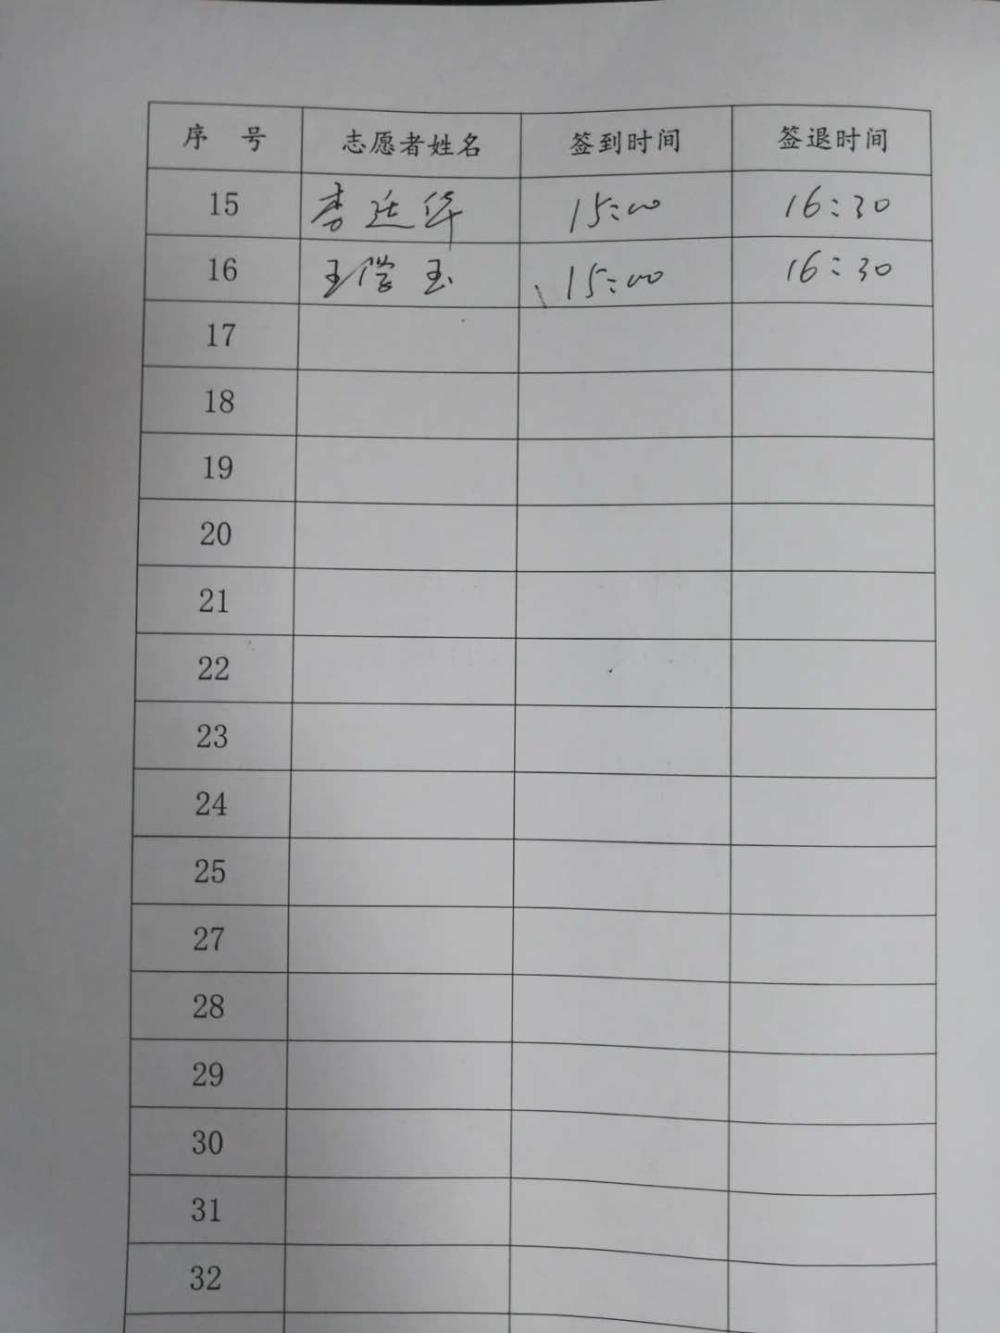 序 号 志愿者姓名 签到时间 签退时间
15 李延华 15:00 16:30
16 王 玉 15:00 16:30
17
18
19
20
21
22
23
24
25
27
28
29
30
31
32